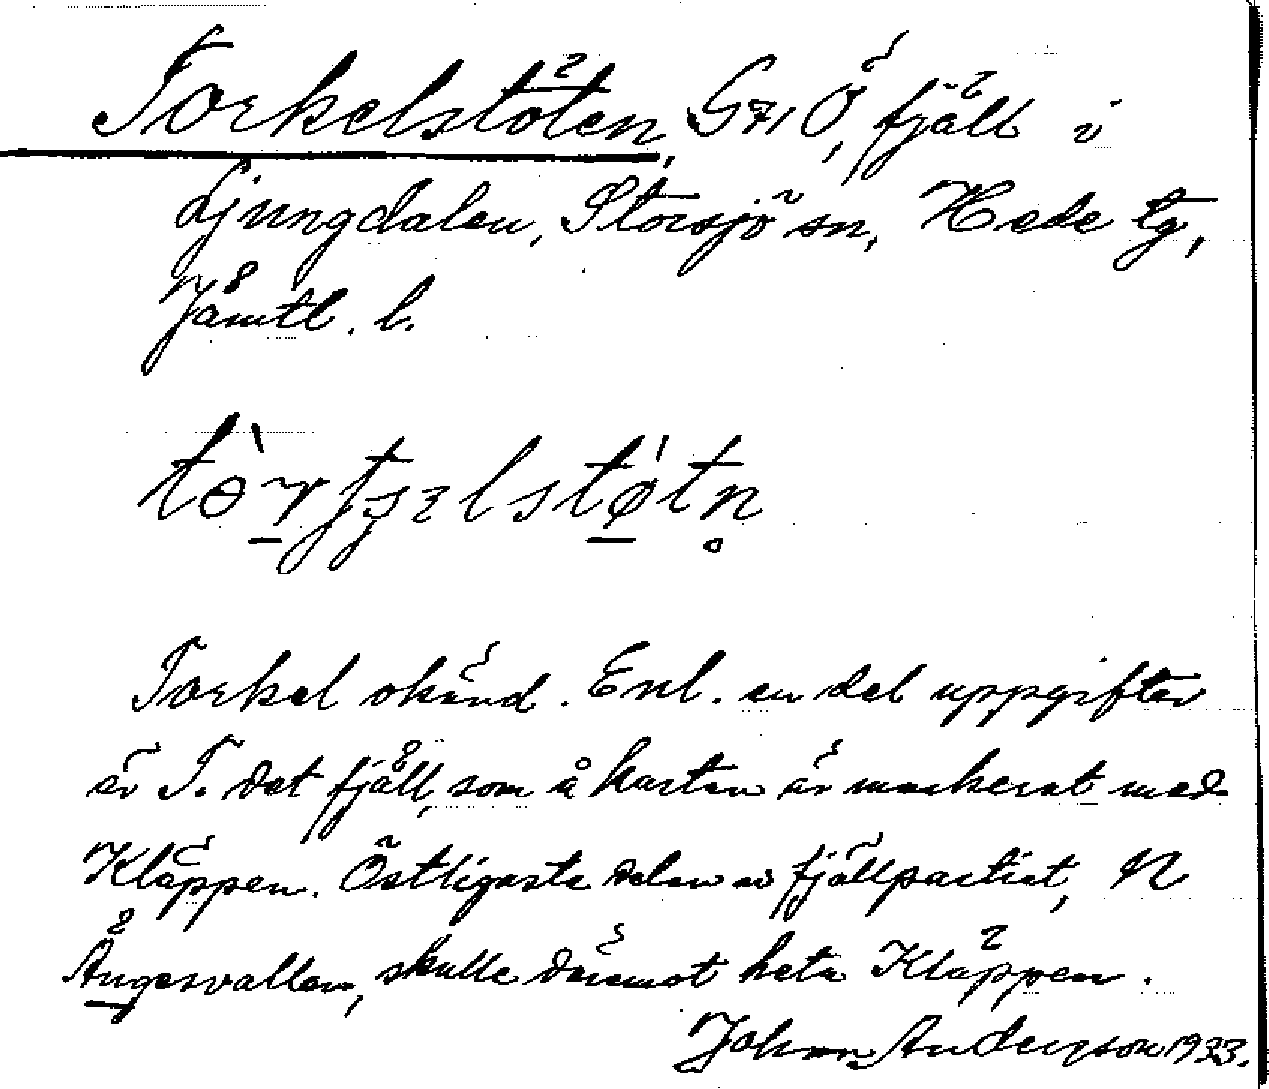 Torkelstöten, G71 Ö, fjäll i
Ljungdalen, Storsjö sn, Hede tg,
Jämtl. l.
Torkel okänd. Enl. en del uppgifter
är T. det fjäll, som å kartan är markerat med
Kläppen. Östligaste delen av fjällpartiet, N
Ängesvallen, skulle däremot heta Kläppen.
Johan Anderzson 1933.